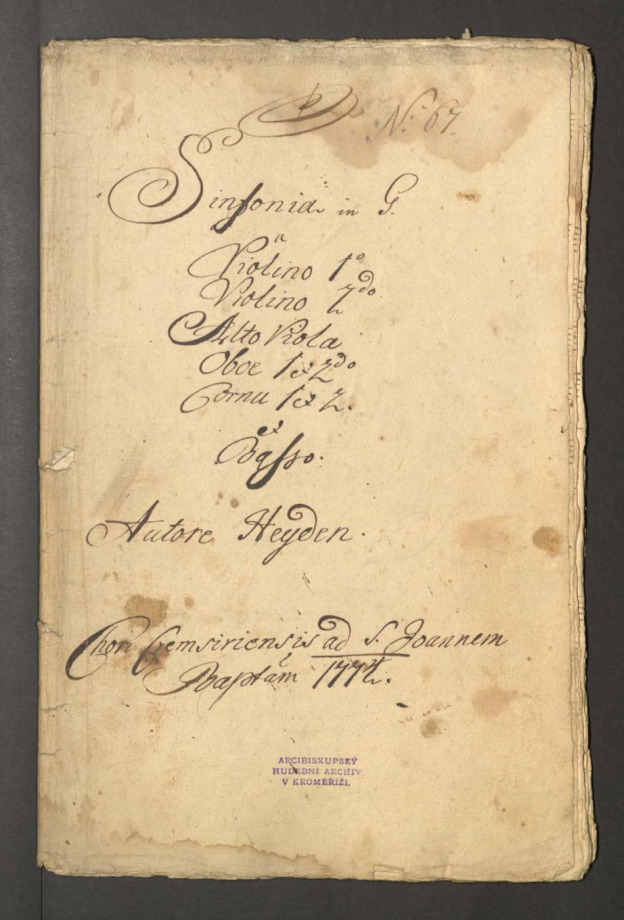 No. 67.
Sinfonia in G.
a
Violino 1o
Violino 2do
Alto Viola
Oboe 1 et 2do
Cornu 1 et 2.
et
Basso.
Autore Heyden.
Chori Cremsiriensis ad S. Joannem
Baptãm 1774.
ARCIBISKUPSKÝ
HUDEBNÍ ARCHIV
V KROMĚŘÍŽI.